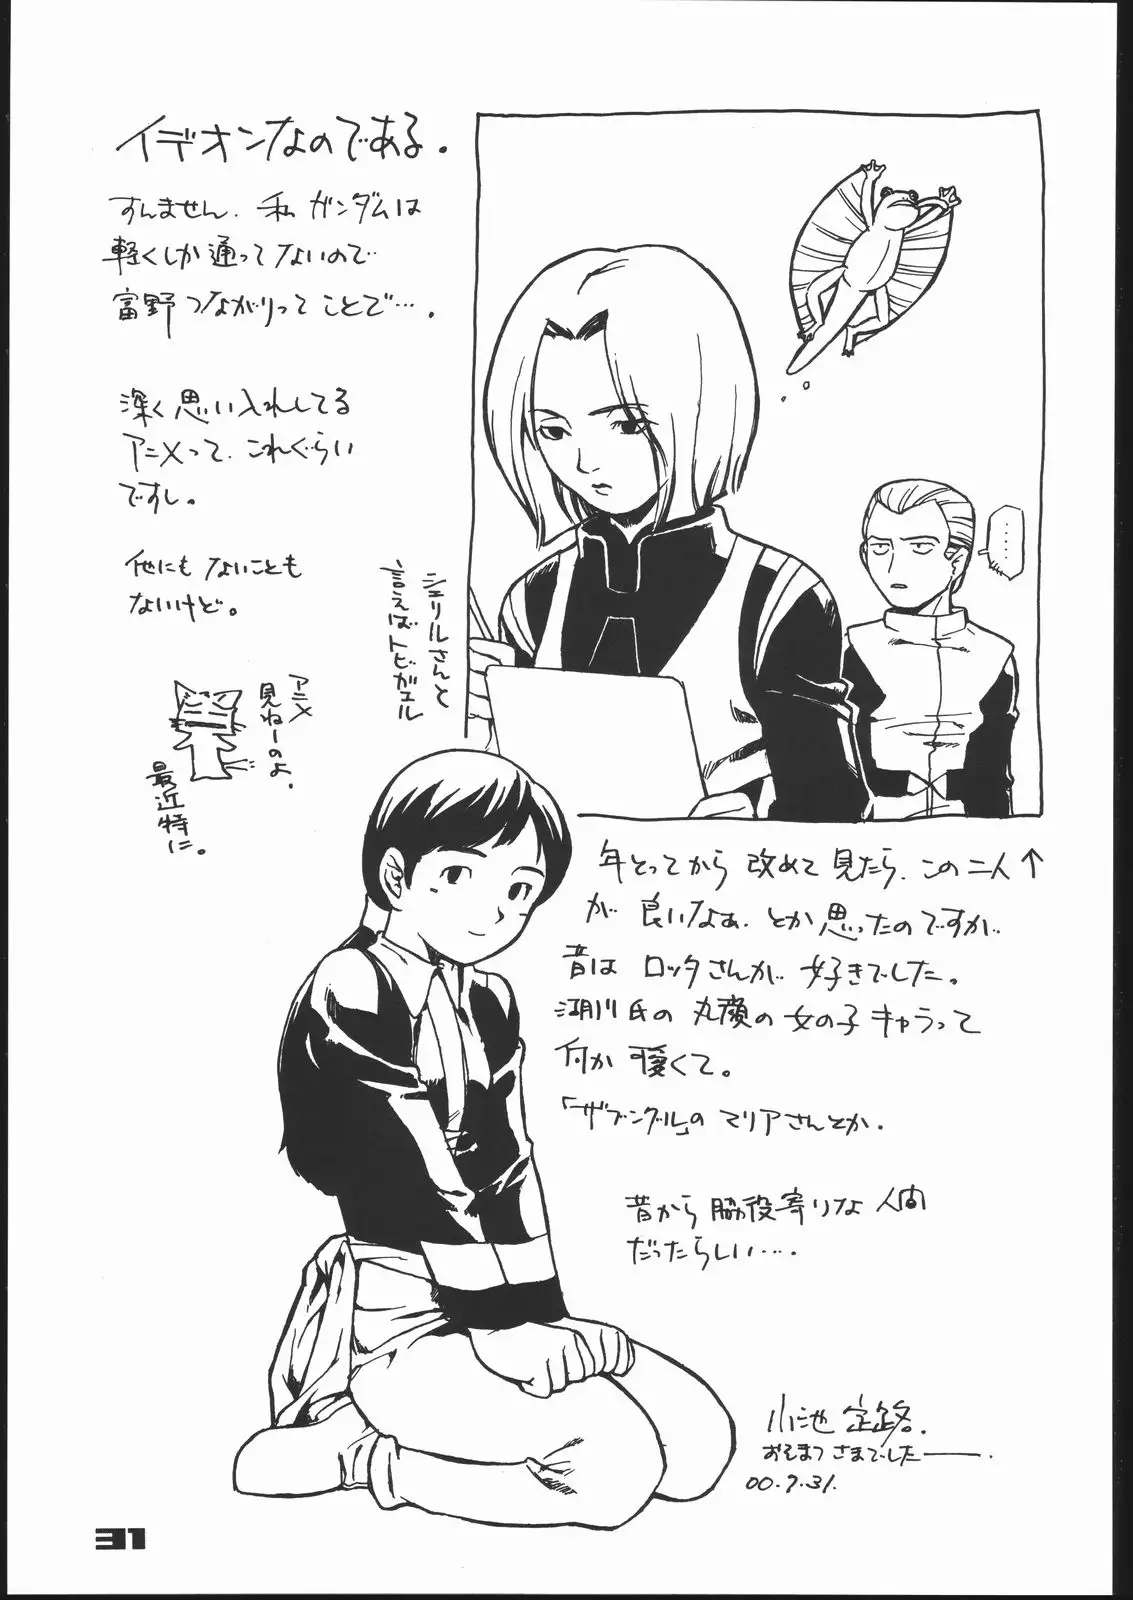 イデオンなのである。
すんません、私 ガンダムは
軽くしか通ってないので
富野つながりってことで…。
深く思い入れしてる
アニメって、これぐらい
ですし。
他にもないことも
ないけど。
アニメ
見ねーのよ、
最近特に。
シェリルさんと
言えばトビガエル
……
年とってから 改めて 見たら、この二人↑
が 良いなぁ、とか思ったのですが
昔は ロッタさんが 好きでした。
湖川氏の 丸顔の 女の子 キャラって
何か 可愛くて。
「ザブングル」の マリアさんとか。
昔から 脇役寄りな 人間
だったらしい…。
小池 定路。
おそまつさまでしたー。
00.7.31.
31